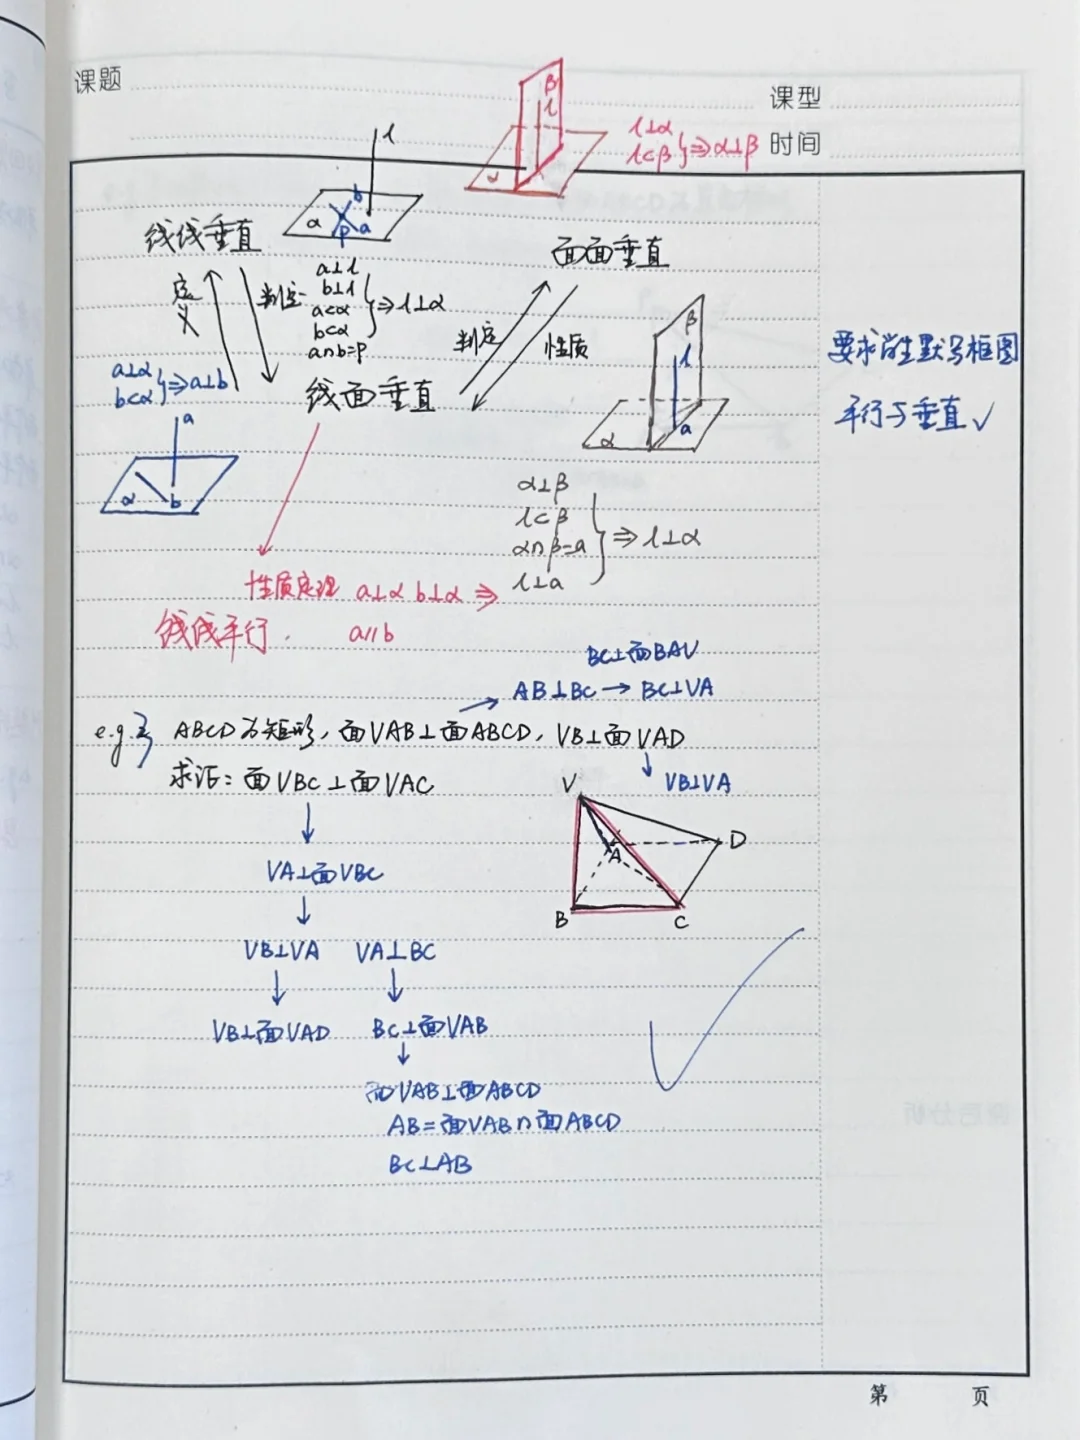 课题
课型
时间
β
l
α
l⊥α
l⊂β
}⇒α⊥β
l
α
b
a
P
线线垂直
面面垂直
定义
判定
a⊥l
b⊥l
a⊂α
b⊂α
a∩b=P
}⇒l⊥α
判定
性质
β
l
α
a
要求学生默写框图
平行与垂直✓
a⊥α
b⊂α
}⇒a⊥b
线面垂直
a
α
b
α⊥β
l⊂β
α∩β=a
l⊥a
}⇒l⊥α
性质定理 a⊥α b⊥α ⇒
线线平行. a//b
BC⊥面BAV
→ AB⊥BC → BC⊥VA
e.g.3 ABCD为矩形, 面VAB⊥面ABCD, VB⊥面VAD
求证: 面VBC⊥面VAC
↓ VB⊥VA
V
A
D
B
C
↓
VA⊥面VBC
↓
VB⊥VA VA⊥BC
↓ ↓
VB⊥面VAD BC⊥面VAB
↓
面VAB⊥面ABCD
AB=面VAB∩面ABCD
BC⊥AB
第 页